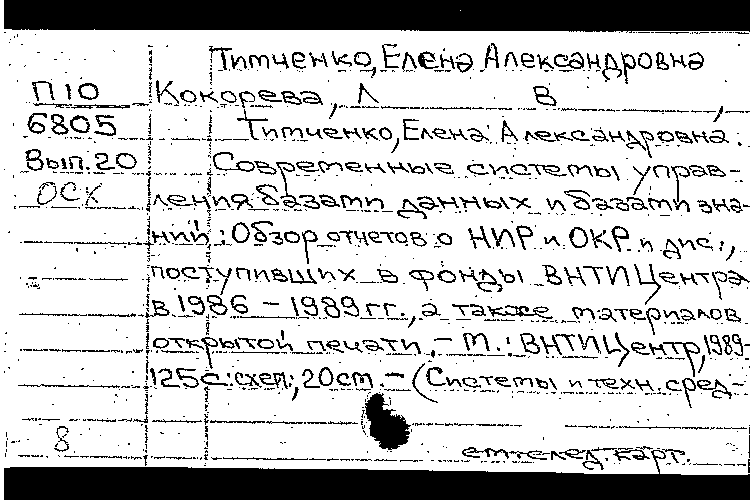 Титченко, Елена Александровна
П10 Кокорева, Л В ,
6805 Титченко, Елена Александровна.
Вып.20 Современные системы управ-
ОСК ления базами данных и базами зна-
ний: Обзор отчетов о НИР и ОКР и дис.,
поступивших в фонды ВНТИЦентра
в 1986 - 1989 гг., а также материалов
открытой печати. - М.: ВНТИЦентр, 1989-
125с.: схем.; 20см. - (Системы и техн. сред-
8 след. карт.